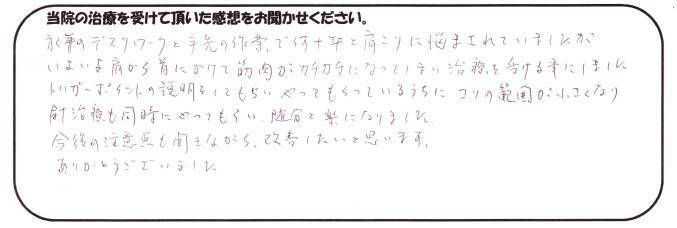 当院の治療を受けて頂いた感想をお聞かせください。
永年のデスクワークと手先の作業で何十年と肩こりに悩まされていましたが
いよいよ肩から首にかけて筋肉がカチカチになってしまい治療を受ける事にしました
トリガーポイントの説明をしてもらいやってもらっているうちにコリの範囲が小さくなり
針治療も同時にやってもらい、随分と楽になりました。
今後の注意点も聞きながら、改善したいと思います。
ありがとうございました